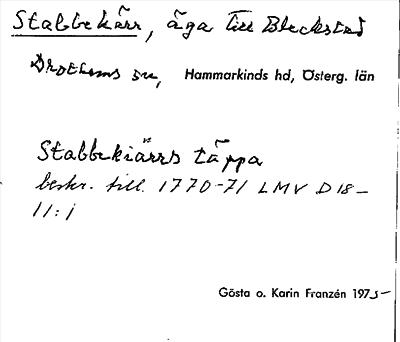 Stabbekärr, äga till Bleckstad
Drothems sn, Hammarkinds hd, Österg. län
Stabbekiärrs täppa
beskr. till. 1770-71 LMV D 18-
11:1
Gösta o. Karin Franzén 1975